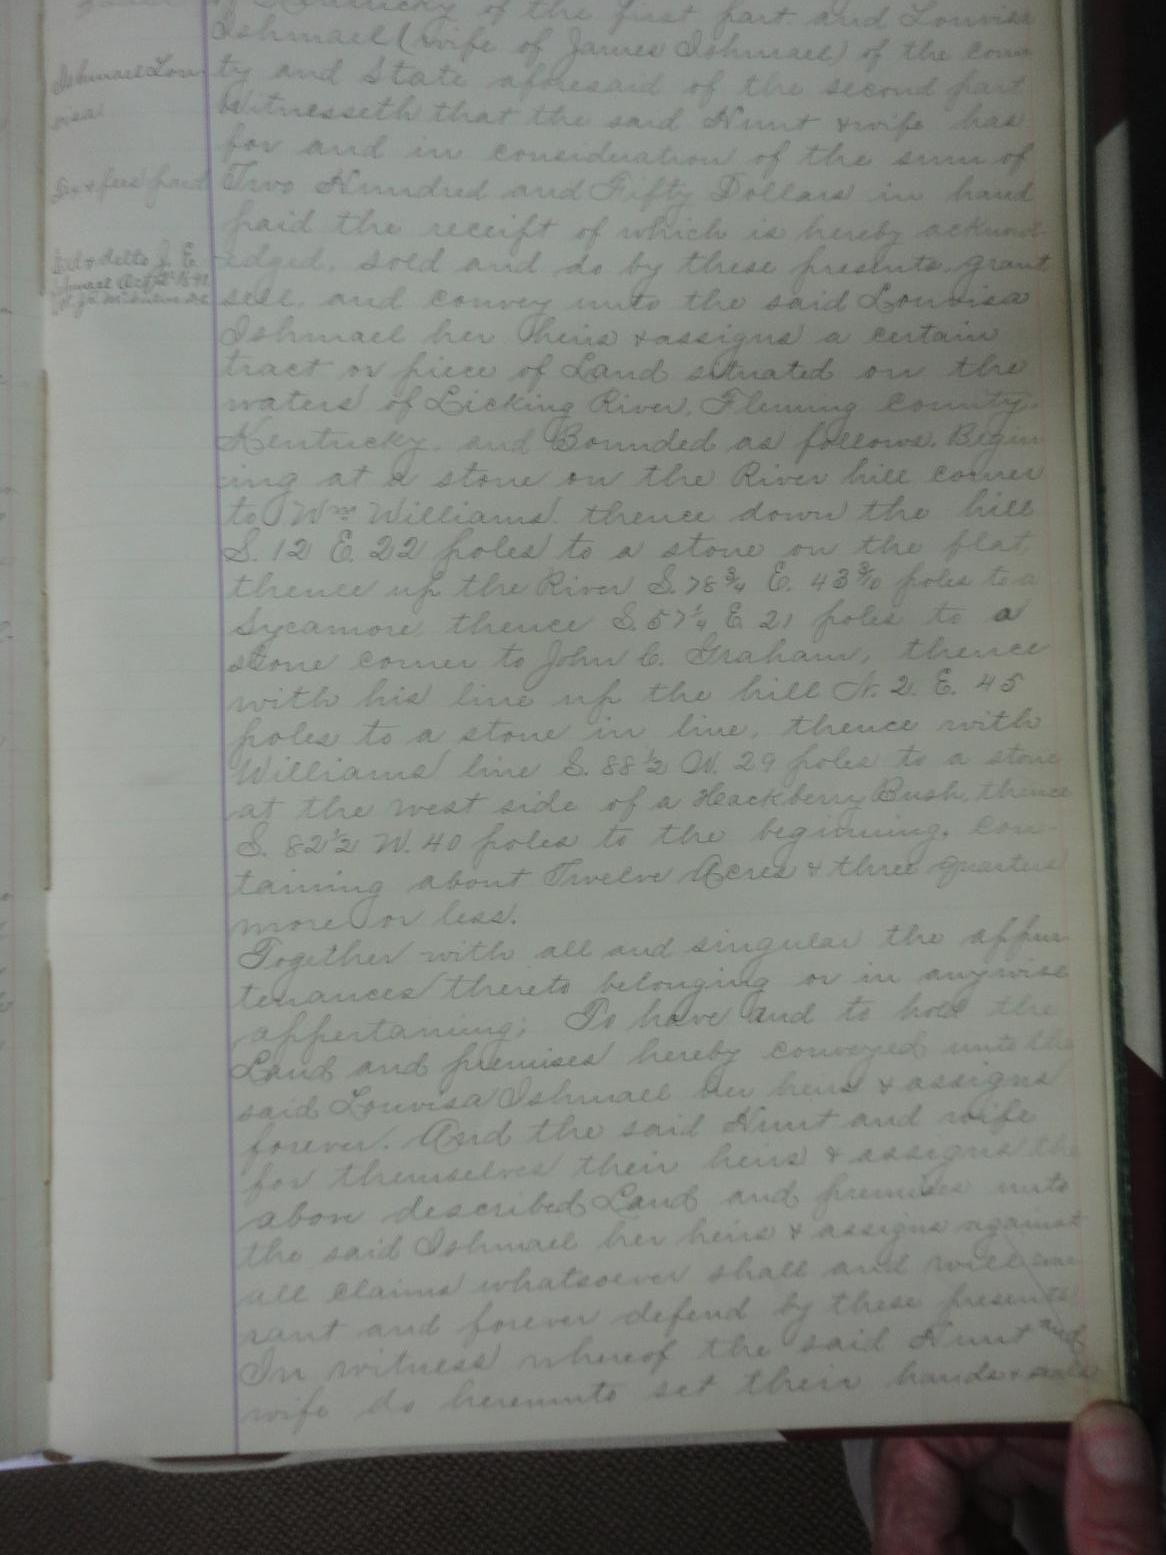 of Kentucky of the first part and Louvisa
Ishmael (wife of James Ishmael) of the coun
Ishmael Lou
visa
ty and State aforesaid of the second part
Witnesseth that the said Hunt & wife has
for and in consideration of the sum of
Tax & fees paid
Two Hundred and Fifty Dollars in hand
paid the receipt of which is hereby acknowl
delto J. E.
edged, sold and do by these presents, grant
sell, and convey unto the said Louvisa
Ishmael her heirs & assigns a certain
tract or piece of Land situated on the
waters of Licking River, Fleming County
Kentucky, and Bounded as follows. Begin
ing at a stone on the River hill corner
to Wm Williams thence down the hill
S. 12 E. 22 poles to a stone on the flat,
thence up the River S. 78 3/4 E. 43 3/10 poles to a
Sycamore, thence S. 57 1/4 E 21 poles to a
stone corner to John C. Graham, thence
with his line up the hill N. 2. E. 45
poles to a stone in line, thence with
Williams line S. 88 1/2 W. 29 poles to a stone
at the west side of a Hackberry Bush, thence
S. 82 1/2 W. 40 poles to the beginning, con-
taining about Twelve Acres & three quarters
more or less.
Together with all and singular the appur
tenances thereto belonging or in anywise
appertaining; To have and to hold the
Land and premises hereby conveyed unto the
said Louvisa Ishmael her heirs & assigns
forever. And the said Hunt and wife
for themselves their heirs & assigns the
above described Land and premises unto
the said Ishmael her heirs & assigns against
all claims whatsoever shall and will war
rant and forever defend by these presents
In witness whereof the said Hunt and
wife do hereunto set their hands & seals